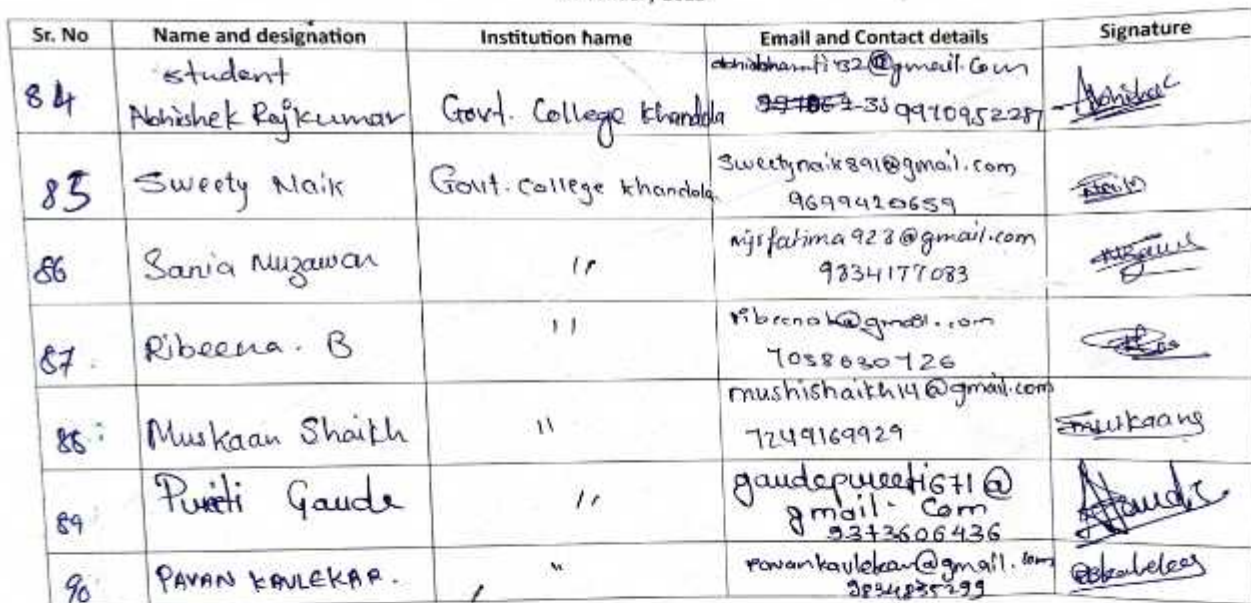 Sr. No Name and designation Institution name Email and Contact details Signature
84 student
Abhishek Rajkumar Govt. College Khandola 9970952287 Abhishek
85 Sweety Naik Govt. College Khandola sweetynaik891@gmail.com
9699420659 Naik
86 Sania Muzawar " mjsfatima928@gmail.com
9834177083
87. Ribeena. B " ribeenak@gmail.com
7058630726
88: Muskaan Shaikh " mushishaikh14@gmail.com
7249169929 Muskaans
89 Preeti Gaude " gaudepreeti671@
gmail. Com
9373606436 Gaude
90 PAVAN KAVLEKAR. " Pavankavlekar@gmail.com
9834835299